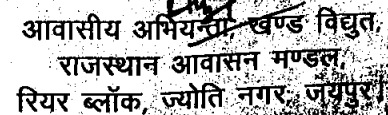 आवासीय अभियन्ता खण्ड विद्युत,
राजस्थान आवासन मण्डल,
रियर ब्लॉक, ज्योति नगर, जयपुर।